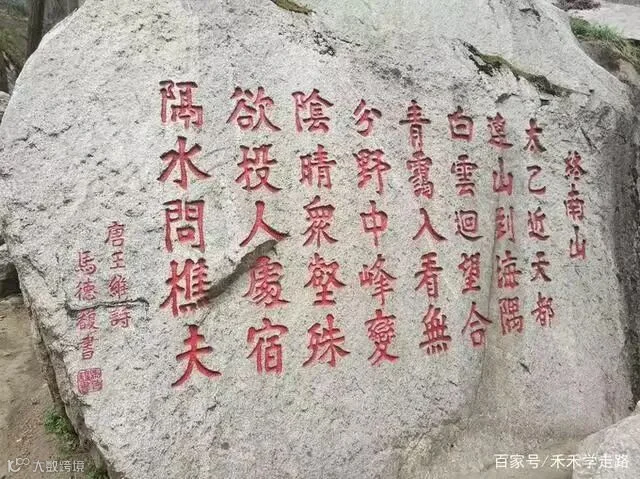 終南山
太乙近天都
連山到海隅
白雲迴望合
青靄入看無
分野中峰變
陰晴衆壑殊
欲投人處宿
隔水問樵夫
唐王維詩
馬德馥書
大数跨境
百家号/禾禾学走路